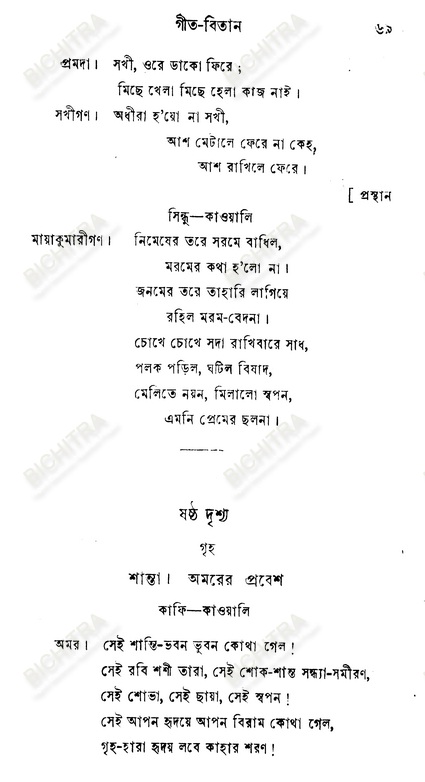 গীত-বিতান ৬৯
প্রমদা। সখী, ওরে ডাকো ফিরে;
মিছে খেলা মিছে হেলা কাজ নাই।
সখীগণ। অধীরা হ'য়ো না সখী,
আশ মেটালে ফেরে না কেহ,
আশ রাখিলে ফেরে।
[ প্রস্থান
সিন্ধু—কাওয়ালি
মায়াকুমারীগণ। নিমেষের তরে সরমে বাধিল,
মরমের কথা হ'লো না।
জনমের তরে তাহারি লাগিয়ে
রহিল মরম-বেদনা।
চোখে চোখে সদা রাখিবারে সাধ,
পলক পড়িল, ঘটিল বিষাদ,
মেলিতে নয়ন, মিলালো স্বপন,
এমনি প্রেমের ছলনা।
ষষ্ঠ দৃশ্য
গৃহ
শান্তা। অমরের প্রবেশ
কাফি—কাওয়ালি
অমর। সেই শান্তি-ভবন ভুবন কোথা গেল!
সেই রবি শশী তারা, সেই শোক-শান্ত সন্ধ্যা-সমীরণ,
সেই শোভা, সেই ছায়া, সেই স্বপন!
সেই আপন হৃদয়ে আপন বিরাম কোথা গেল,
গৃহ-হারা হৃদয় লবে কাহার শরণ!
BICHITRA
BICHITRA
BICHITRA
BICHITRA
BICHITRA
BICHITRA
BICHITRA
BICHITRA